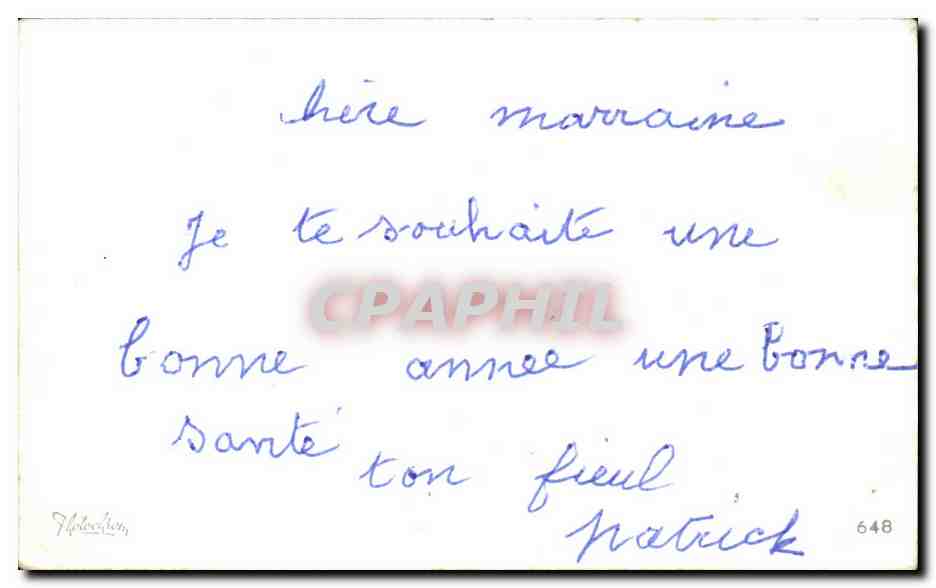 chère marraine
Je te souhaite une
CPAPHIL
bonne année une bonne
santé
ton fieul
patrick
Photochrom
648